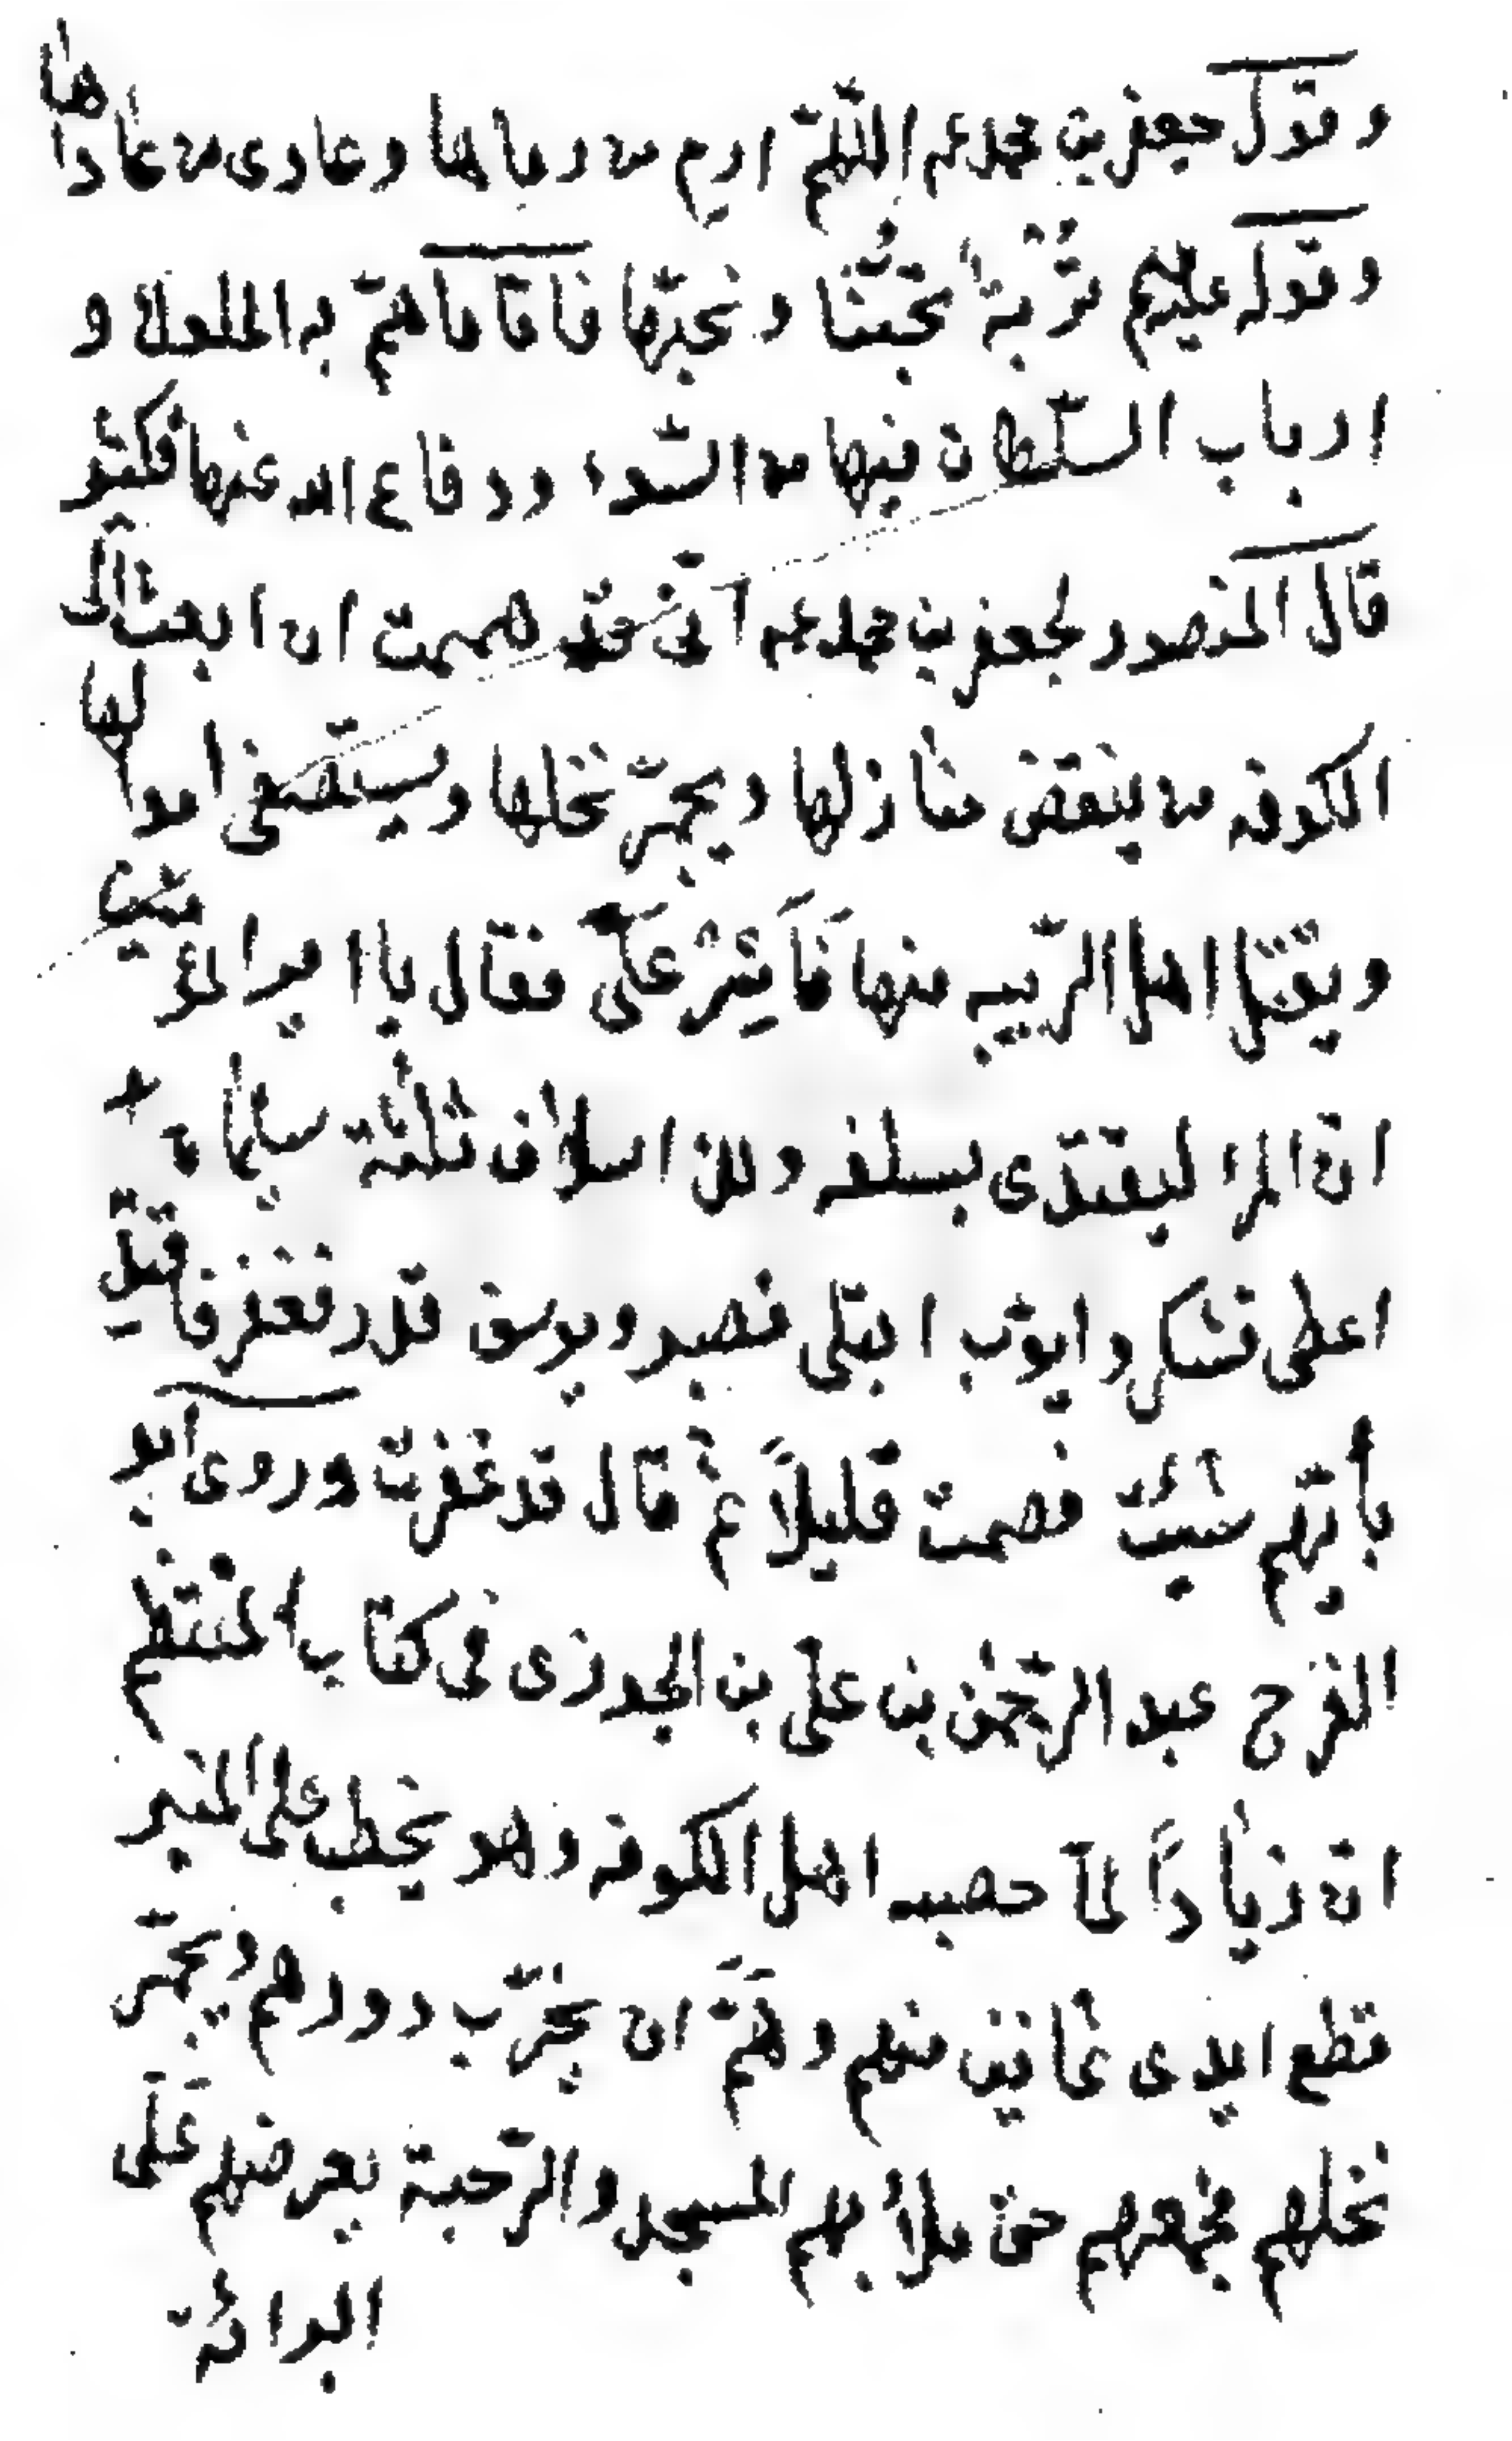 وقول جعفر بن محمد عم اللهمّ ارم من رماها وعادى من عاداها
وقوله عليهم تُرْبةٌ تحبُّنا ونحبّها فاما ما همّ به الملوك و
ارباب السّلطان فيها من السّوء ودفاع الله عنها فكثير
قال المنصور لجعفر بن محمد عم انّى قد هممت ان ابعث الى
الكوفه من ينقض منازلها ويجمّر نخلها ويستصفى اموالها
ويقتل اهل الرّيبه منها فَأَشِرْ علىَّ فقال يا امير المؤمنين
انّ المرء ليقتدى بسلفه ولك اسلاف ثلثة سليمان
اعطى فشكر وايوّب ابتلى فصبر ويوسف قدر فغفر فاقتد
بأيّهم شئت فصمت قليلاً ثمّ قال قد غفرت وروى ابو
الفرج عبد الرّحمن بن علىّ بن الجوزى فى كتاب المنتظم
انّ زياداً لمّا حصبه اهل الكوفه وهو يخطب على المنبر
قطع ايدى ثمانين منهم وهَمَّ ان يخرّب دورهم ويجمّر
نخلهم فجمعهم حتى ملأ بهم المسجد والرّحبة يعرضهم عَلَى
البرائة